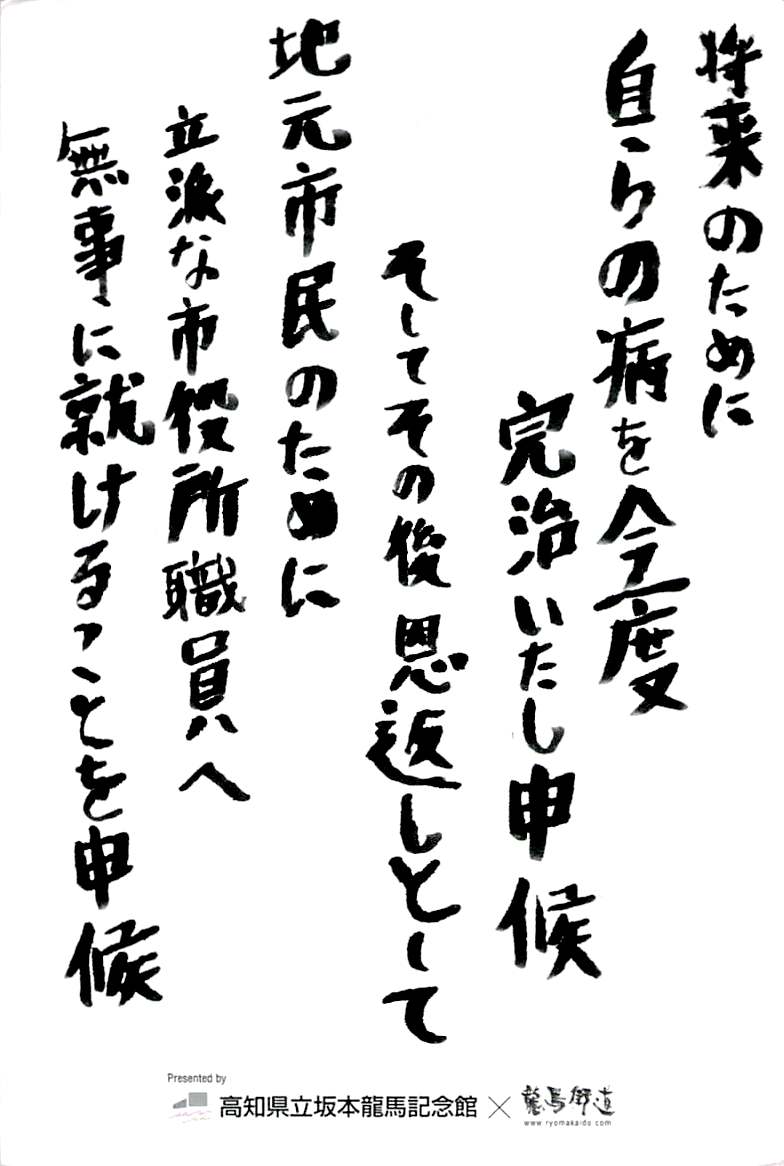 将来のために
自らの病を今一度
完治いたし申候
そしてその後恩返しとして
地元市民のために
立派な市役所職員へ
無事に就けることを申候
Presented by
高知県立坂本龍馬記念館×龍馬街道
www.ryomakaido.com